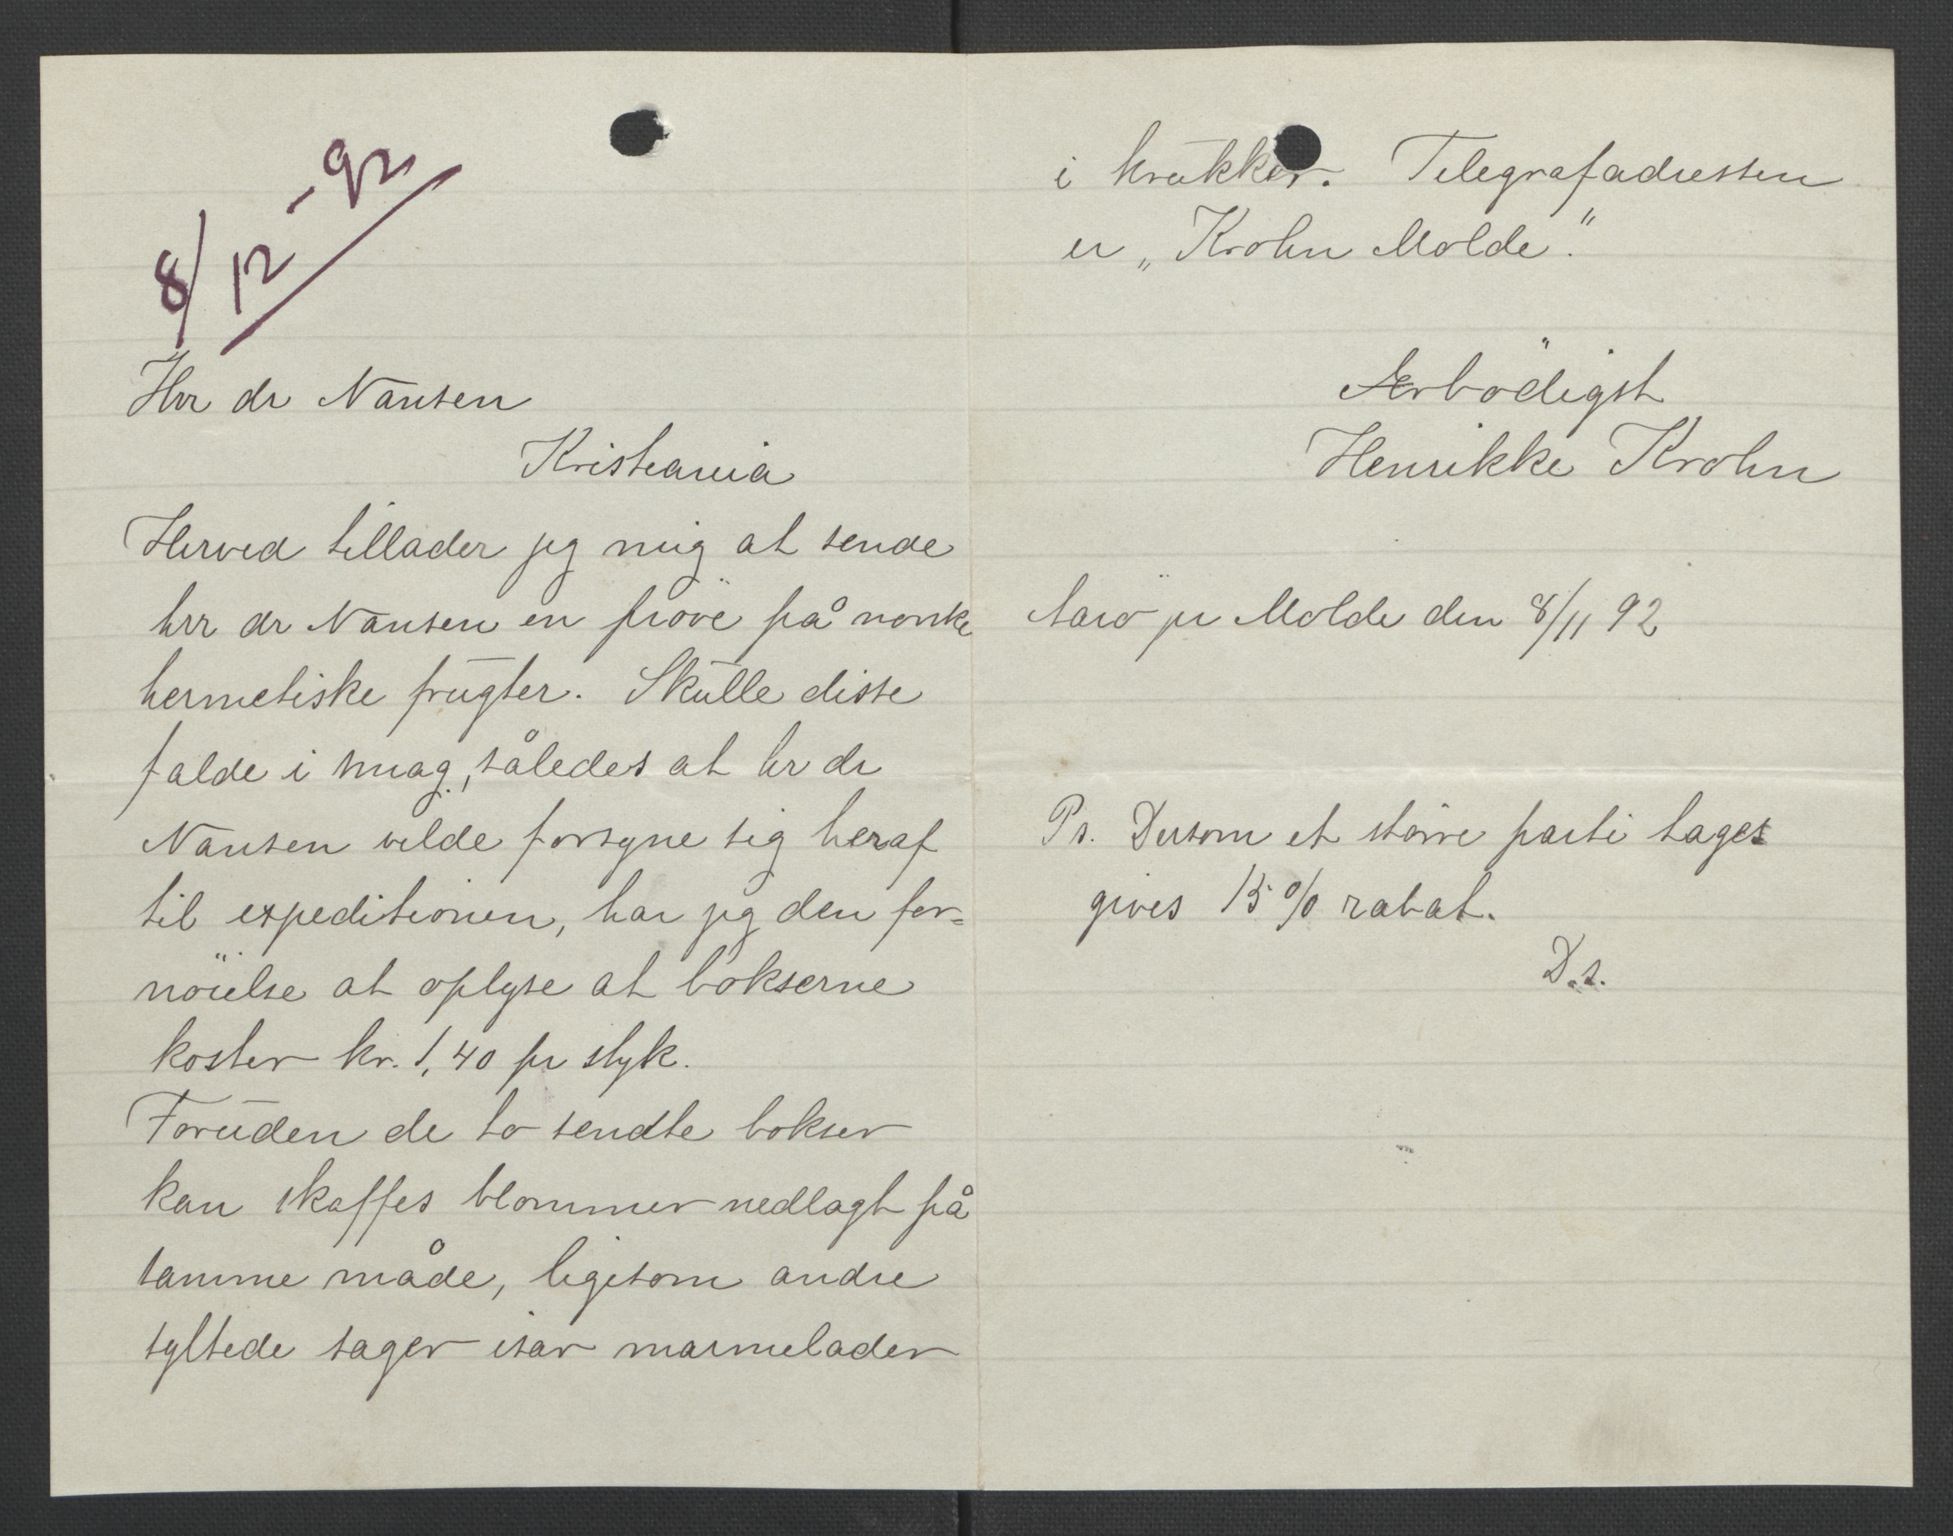 8/12 -92
Hrr dr Nansen
Kristiania
Herved tillader jeg mig at sende
hrr dr Nansen en pröve på norske
hermetiske frugter. Skulle disse
falde i smag, således at hr dr
Nansen vilde forsyne sig heraf
til expeditionen, har jeg den for=
nöielse at oplyse at bokserne
koster kr. 1,40 pr styk.
Foruden de to sendte bokser
kan skaffes blommer nedlagt på
samme måde, ligesom andre
syltede sager isar marmelader
i krukker. Telegrafadressen
er „Krohn Molde."
Ærbödigst
Henrikke Krohn
Aarö pr Molde den 8/11 92
Ps. Dersom et större parti tages
gives 15 % rabat.
D.s.